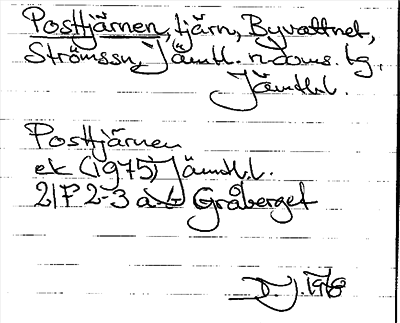 Posttjärnen, tjärn, Byvattnet,
Strömssn, Jämtl. n. doms. tg.
Jämtl.l.
Posttjärnen
ek (1975) Jämtl.l.
21F 2-3 a-b Gråberget
1978